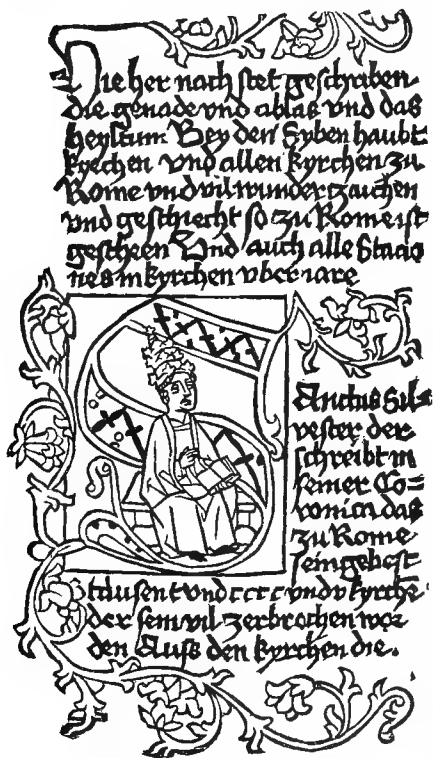 Hie her nach stet geschriben
die genade vnd ablas vnd das
heyltum Bey den Syben haubt
kyrchen vnd allen kyrchen zu
Rome vnd vil wunderzaichen
vnd geschiecht so zu Rome ist
gescheen Vnd auch alle Stacio
nes in kyrchen vber iare
Sanctus Sil=
vester der
schreibt in
seiner Co=
ronica das
zu Rome
sein gebest
tausent vnd cccc vnd v kyrche
der sein vil zerbrochen wor
den Auss den kyrchen die.